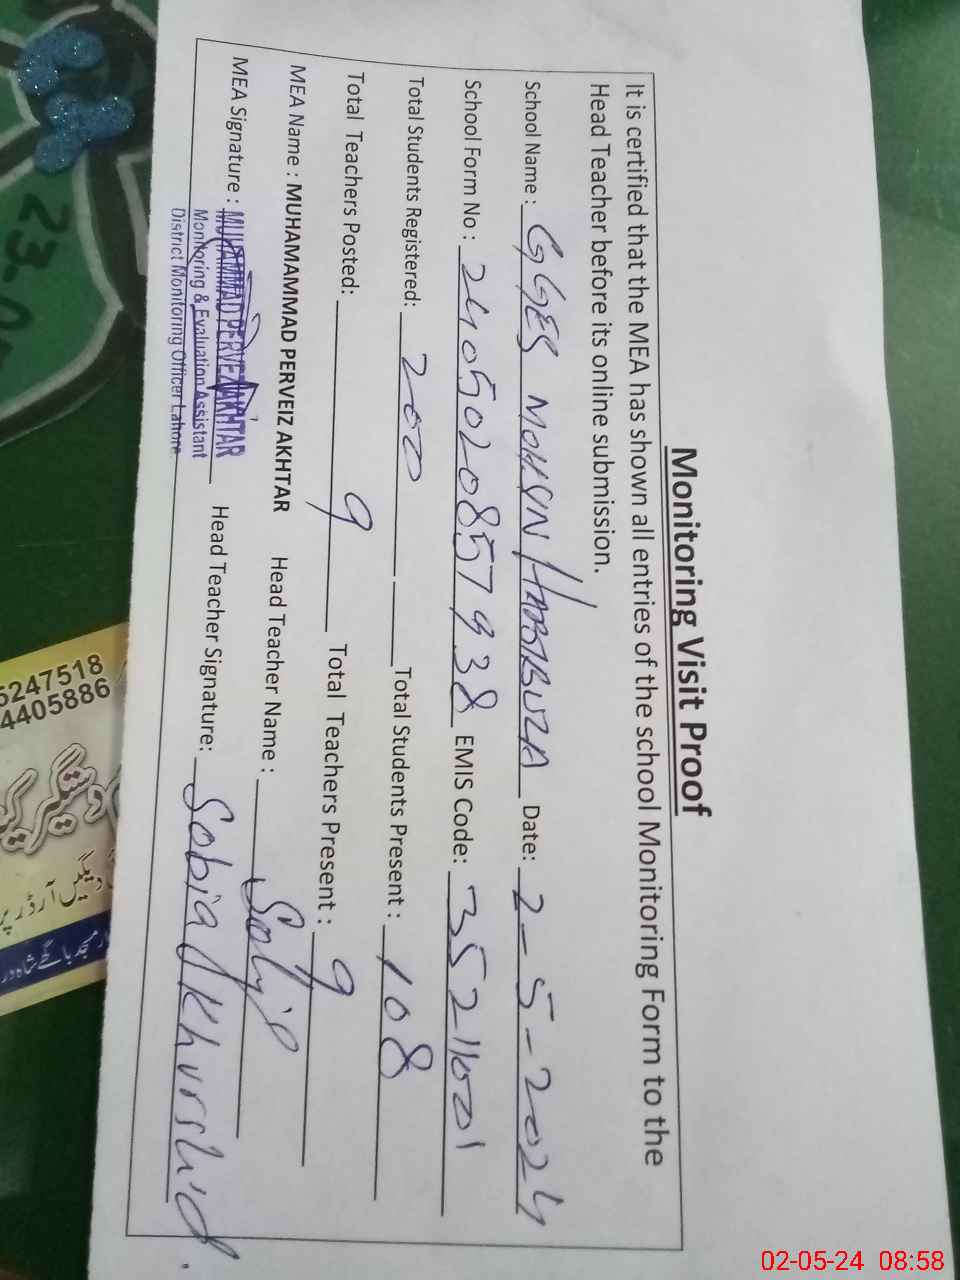 Monitoring Visit Proof
It is certified that the MEA has shown all entries of the school Monitoring Form to the
Head Teacher before its online submission.
School Name : GGES MOHSIN Date: 2-5-2024
School Form No : 2405020857938 EMIS Code: 35211001
Total Students Registered: 200 Total Students Present : 108
Total Teachers Posted: 9 Total Teachers Present : 9
MEA Name : MUHAMAMMAD PERVEIZ AKHTAR Head Teacher Name :
MEA Signature : MUHAMMAD PERVEZ AKHTAR Head Teacher Signature: Sobia Khurshid
Monitoring & Evaluation Assistant
District Monitoring Officer Lahore
23-0
5247518
4405886
02-05-24 08:58